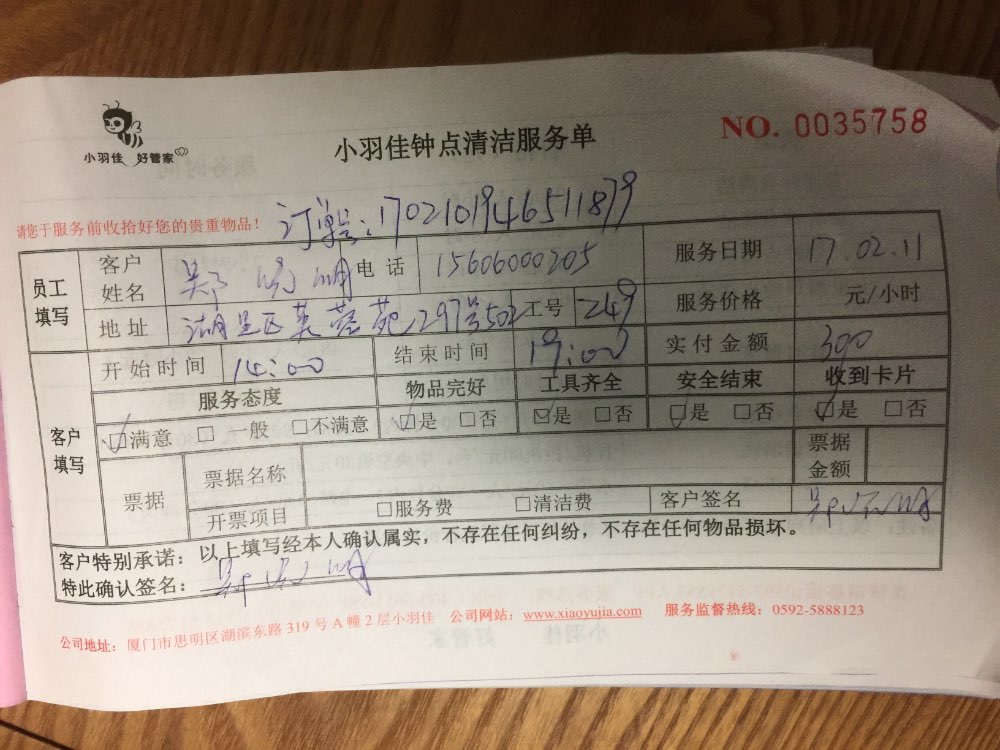 小羽佳 好管家
小羽佳钟点清洁服务单
NO. 0035758
请您于服务前收拾好您的贵重物品！
订单号：1702101946511879
员工填写 客户姓名 电话 15606000205 服务日期 17.02.11
地址 湖里区芙蓉苑297号502 工号 249 服务价格 元/小时
开始时间 14:00 结束时间 19:00 实付金额 300
客户填写 服务态度 物品完好 工具齐全 安全结束 收到卡片
☑满意 □一般 □不满意 ☑是 □否 ☑是 □否 ☑是 □否 ☑是 □否
票据 票据名称 票据金额
开票项目 □服务费 □清洁费 客户签名
客户特别承诺：以上填写经本人确认属实，不存在任何纠纷，不存在任何物品损坏。
特此确认签名：
公司地址：厦门市思明区湖滨东路319号A幢2层小羽佳 公司网站：www.xiaoyujia.com 服务监督热线：0592-5888123